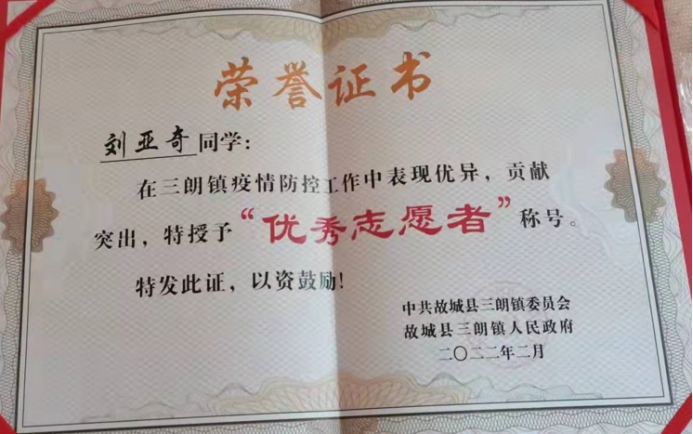 荣誉证书
刘亚奇同学:
在三朗镇疫情防控工作中表现优异，贡献
突出，特授予“优秀志愿者”称号。
特发此证，以资鼓励!
中共故城县三朗镇委员会
故城县三朗镇人民政府
二〇二二年二月